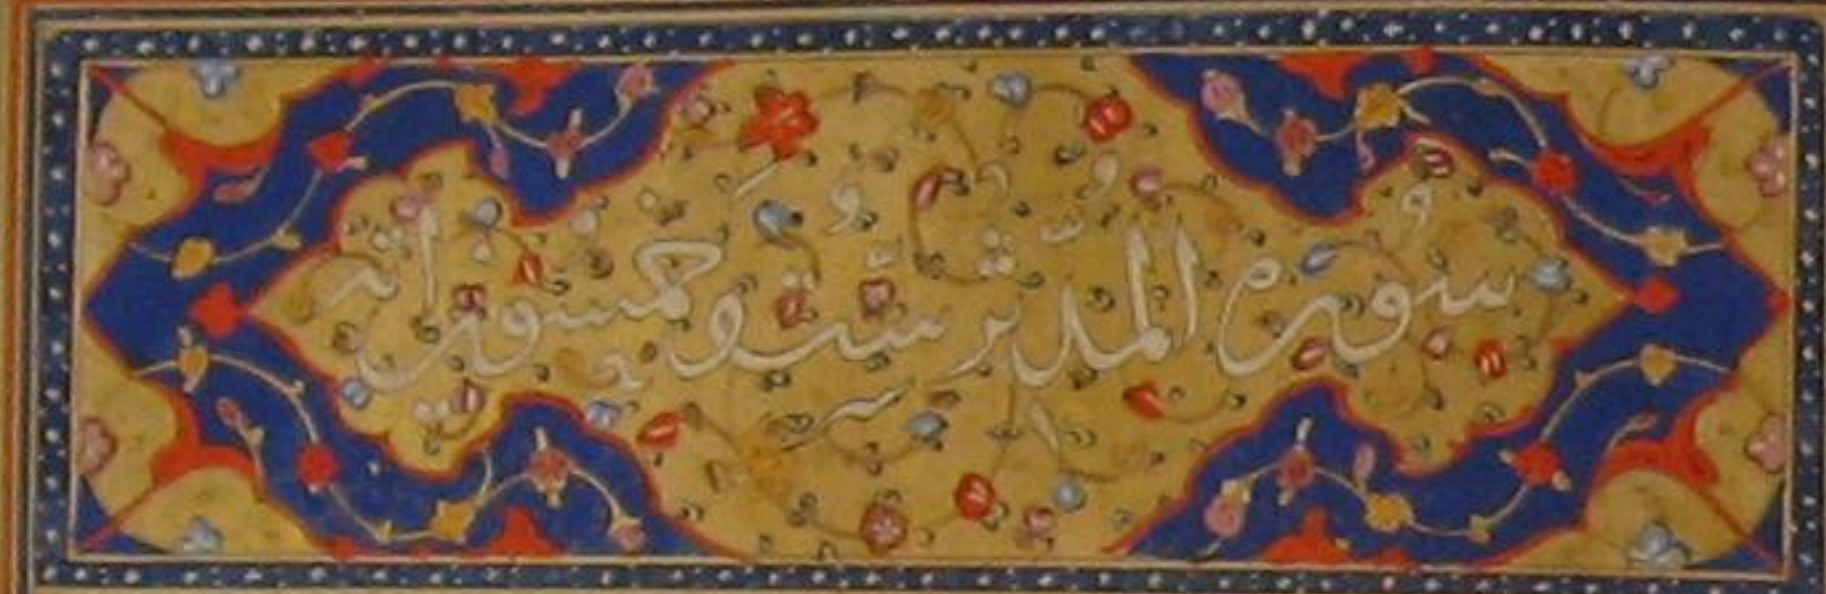 سورة المدثر ست وخمسون اية